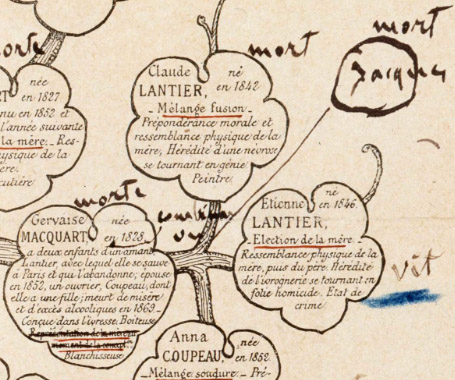 mort
mort
Jacques
morte
Claude né
LANTIER, en 1842
Mélange fusion
Prépondérance morale et
ressemblance physique de la
mère, Hérédité d'une névrose
se tournant en génie.
Peintre.
née
en 1827
en 1852 et
l'année suivante
la mère. Res-
physique de la
morte
Gervaise née
MACQUART, en 1828,
a deux enfants d'un amant,
Lantier, avec lequel elle se sauve
à Paris et qui l'abandonne; épouse
en 1852, un ouvrier, Coupeau, dont
elle a une fille; meurt de misère
et d'excès alcooliques en 1869_
Conçue dans l'ivresse. Boiteuse.
Blanchisseuse
Etienne né
LANTIER, en 1846.
Election de la mère
Ressemblance physique de la
mère, puis du père. Hérédité
de l'ivrognerie se tournant en
folie homicide. Etat de
crime
vit
Anna née
COUPEAU, en 1852.
Mélange soudure _ Pré-